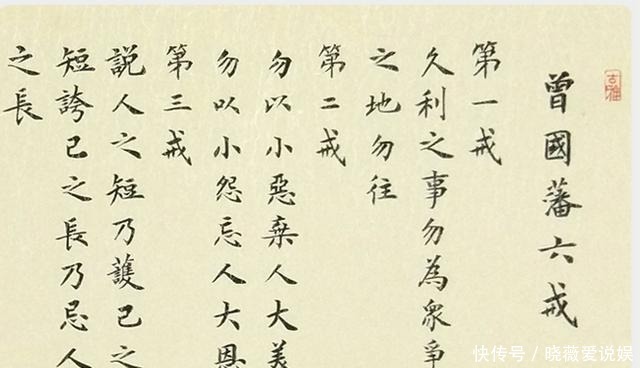 古雅
曾國藩六戒
第一戒
久利之事勿為衆爭
之地勿往
第二戒
勿以小惡棄人大美
勿以小怨忘人大恩
第三戒
説人之短乃護己之
短誇己之長乃忌人
之長
快传号/晓薇爱说娱